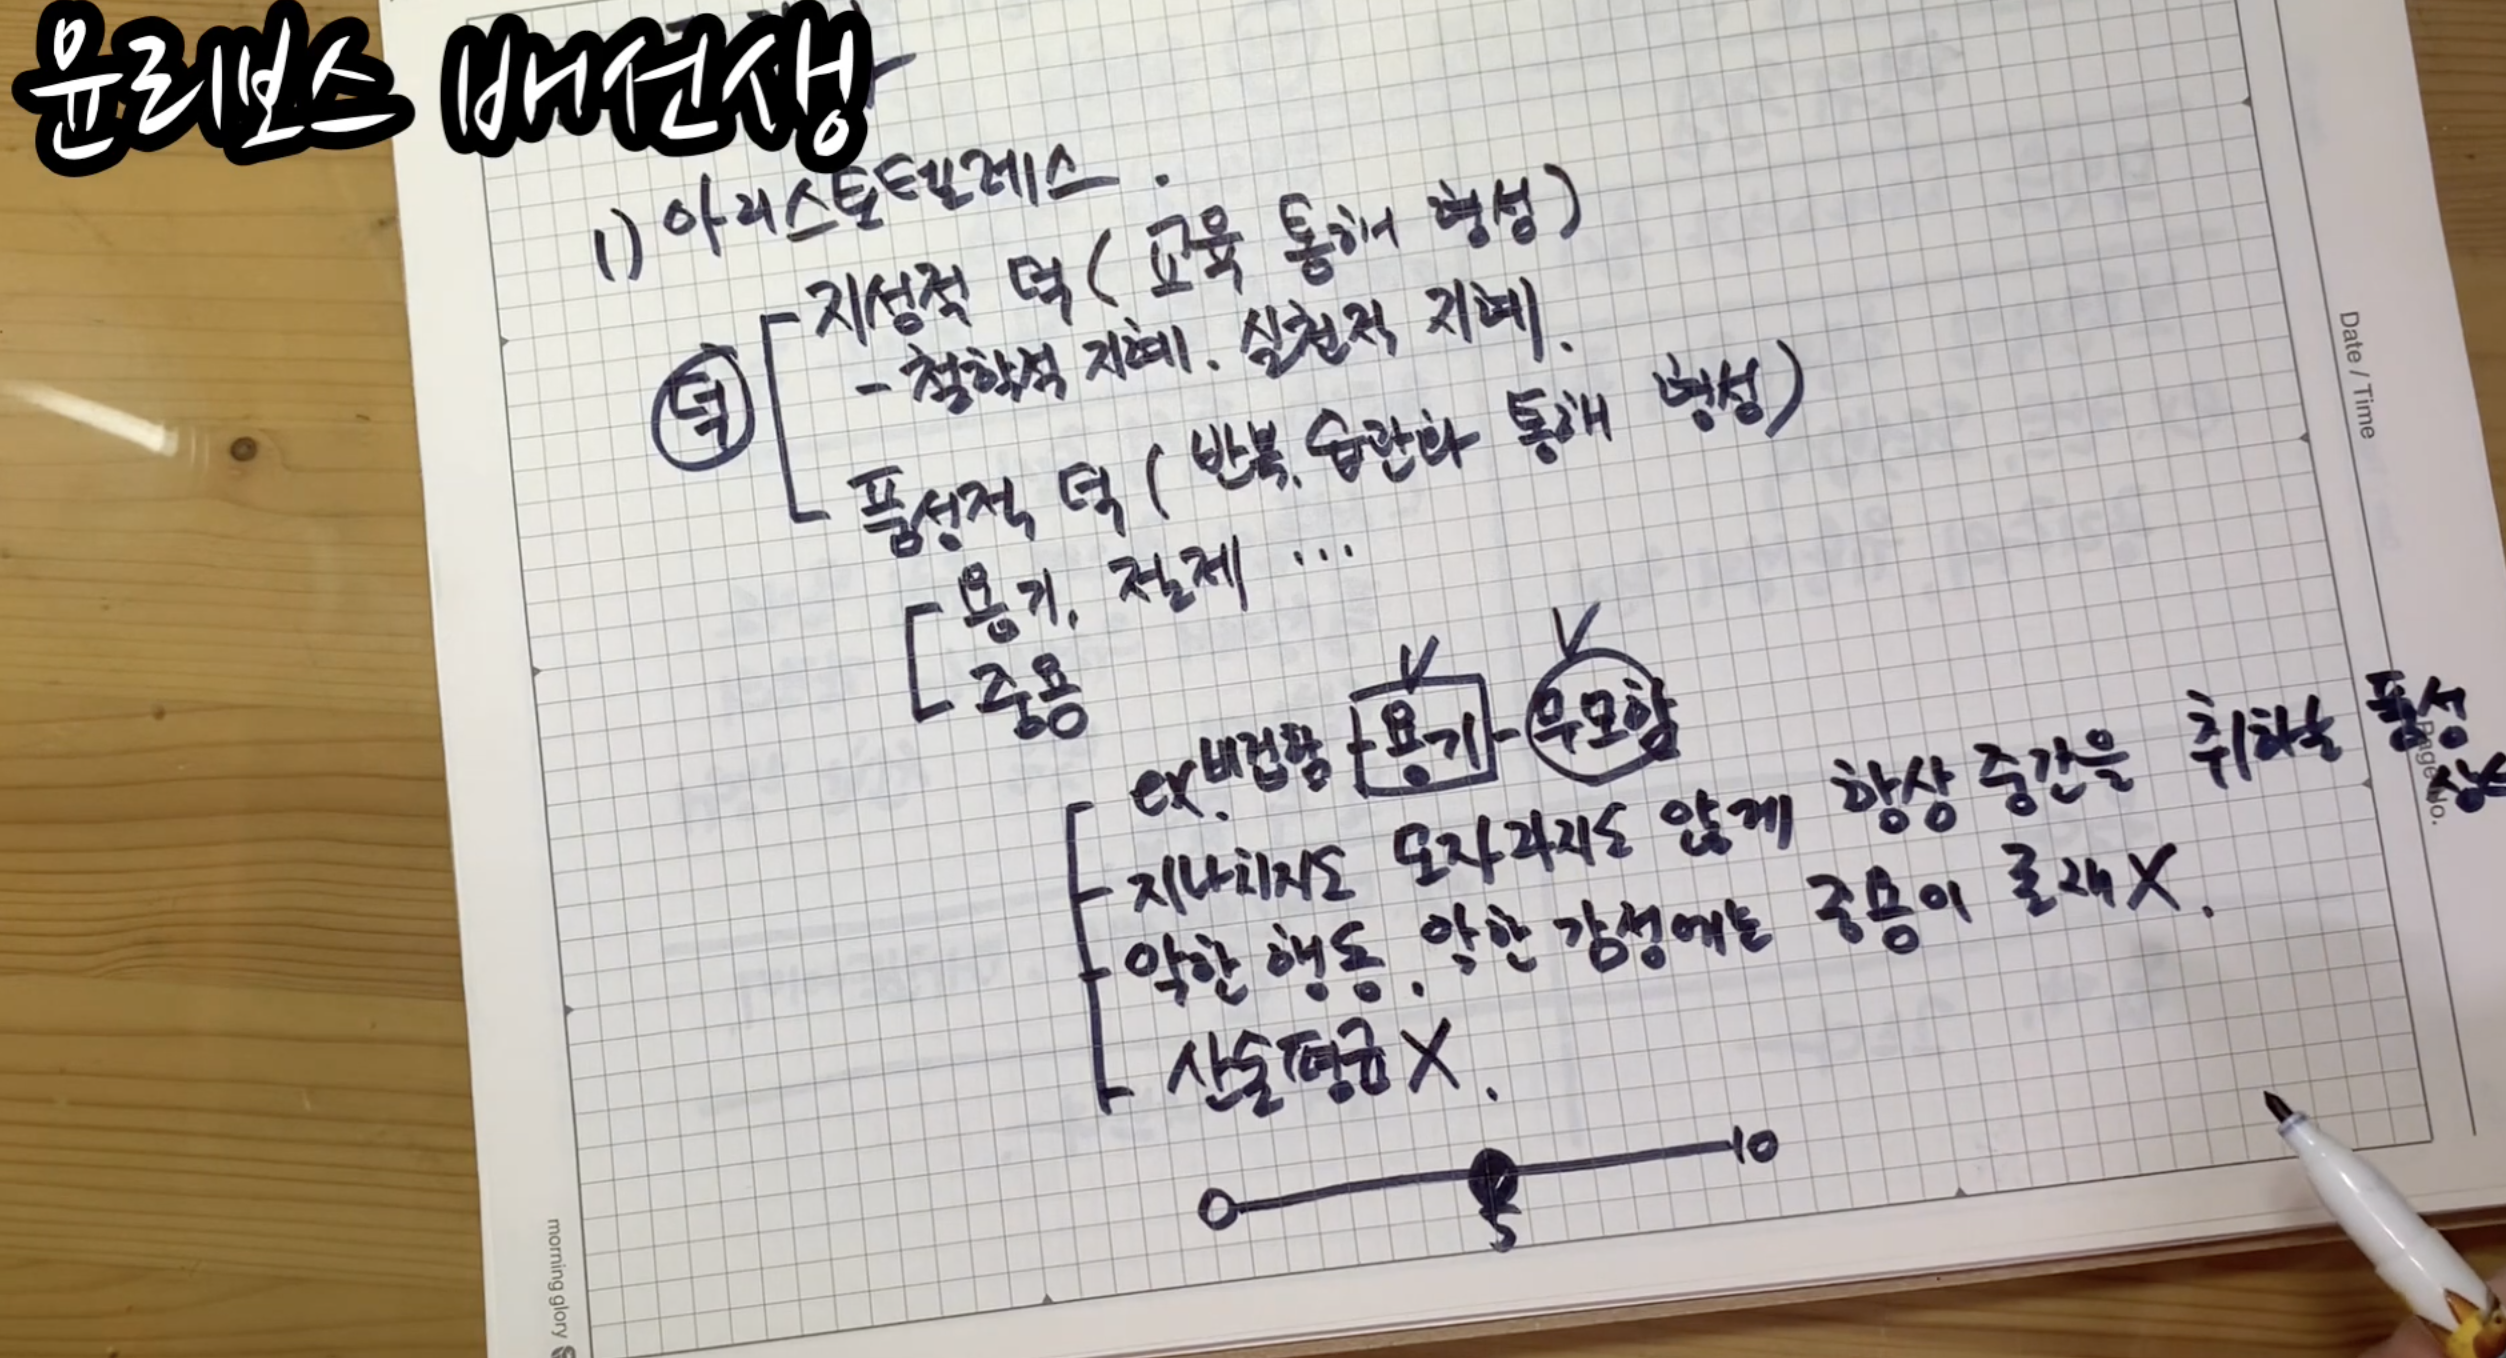 윤리보스 배선생
1) 아리스토텔레스.
지성적 덕 (교육 통해 형성)
- 철학적 지혜. 실천적 지혜.
덕
품성적 덕 (반복. 습관화 통해 형성)
용기. 절제 ...
중용
ex. 비겁함 - 용기 - 무모함
지나치지도 모자라지도 않게 항상 중간을 취하는 품성
악한 행동. 악한 감정에는 중용이 존재 X.
산술평균 X.
0 5 10
Date / Time
Page No.
morning glory